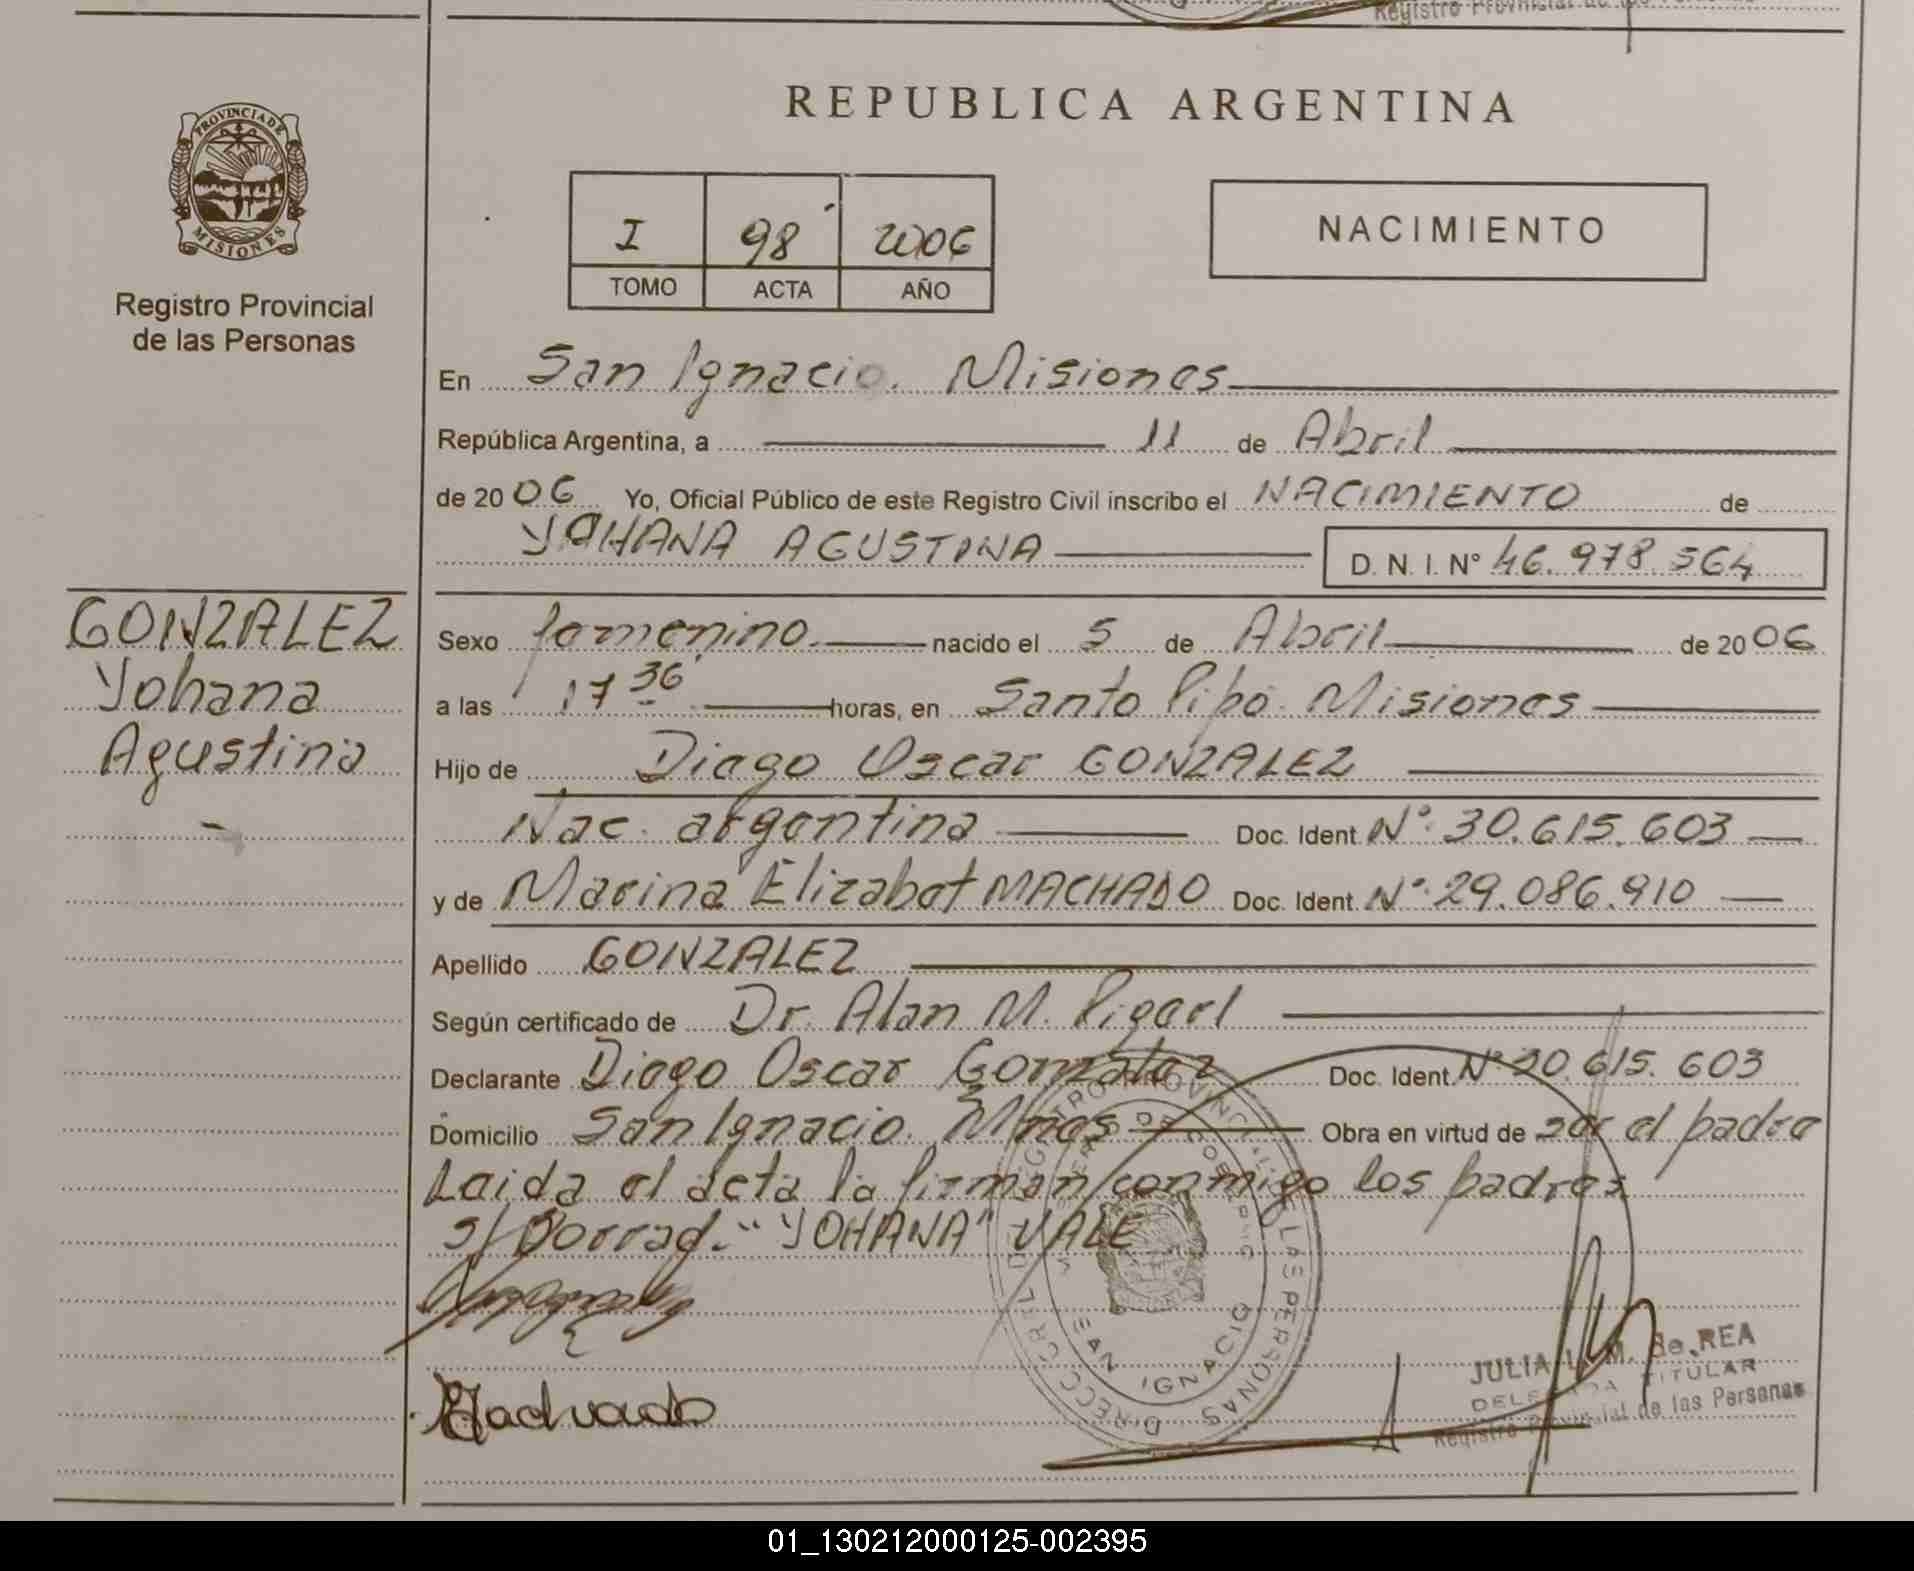 Registro Provincial de las Personas
REPUBLICA ARGENTINA
PROVINCIA DE
MISIONES
Registro Provincial
de las Personas
I 98 2006
TOMO ACTA AÑO
NACIMIENTO
En San Ignacio. Misiones
República Argentina, a 11 de Abril
de 2006 Yo, Oficial Público de este Registro Civil inscribo el NACIMIENTO de
YOHANA AGUSTINA D. N. I. Nº 46.978.564
GONZALEZ
Yohana
Agustina
Sexo femenino nacido el 5 de Abril de 2006
a las 17 36 horas, en Santo Pipó. Misiones
Hijo de Diego Oscar GONZALEZ
Nac. argentina Doc. Ident. Nº 30.615.603
y de Marina Elizabet MACHADO Doc. Ident. Nº 29.086.910
Apellido GONZALEZ
Según certificado de Dr. Alan M.
Declarante Diego Oscar Gonzalez Doc. Ident. Nº 30.615.603
Domicilio San Ignacio. Mnes Obra en virtud de ser el padre
Leida el acta la firman conmigo los padres
s/ Borrad. "YOHANA" VALE
Machado
DIRECC GRL DEL REGISTRO PROVINCIAL DE LAS PERSONAS
SAN IGNACIO
JULIA L. M. de REA
DELEGADA TITULAR
Registro Provincial de las Personas
01_130212000125-002395